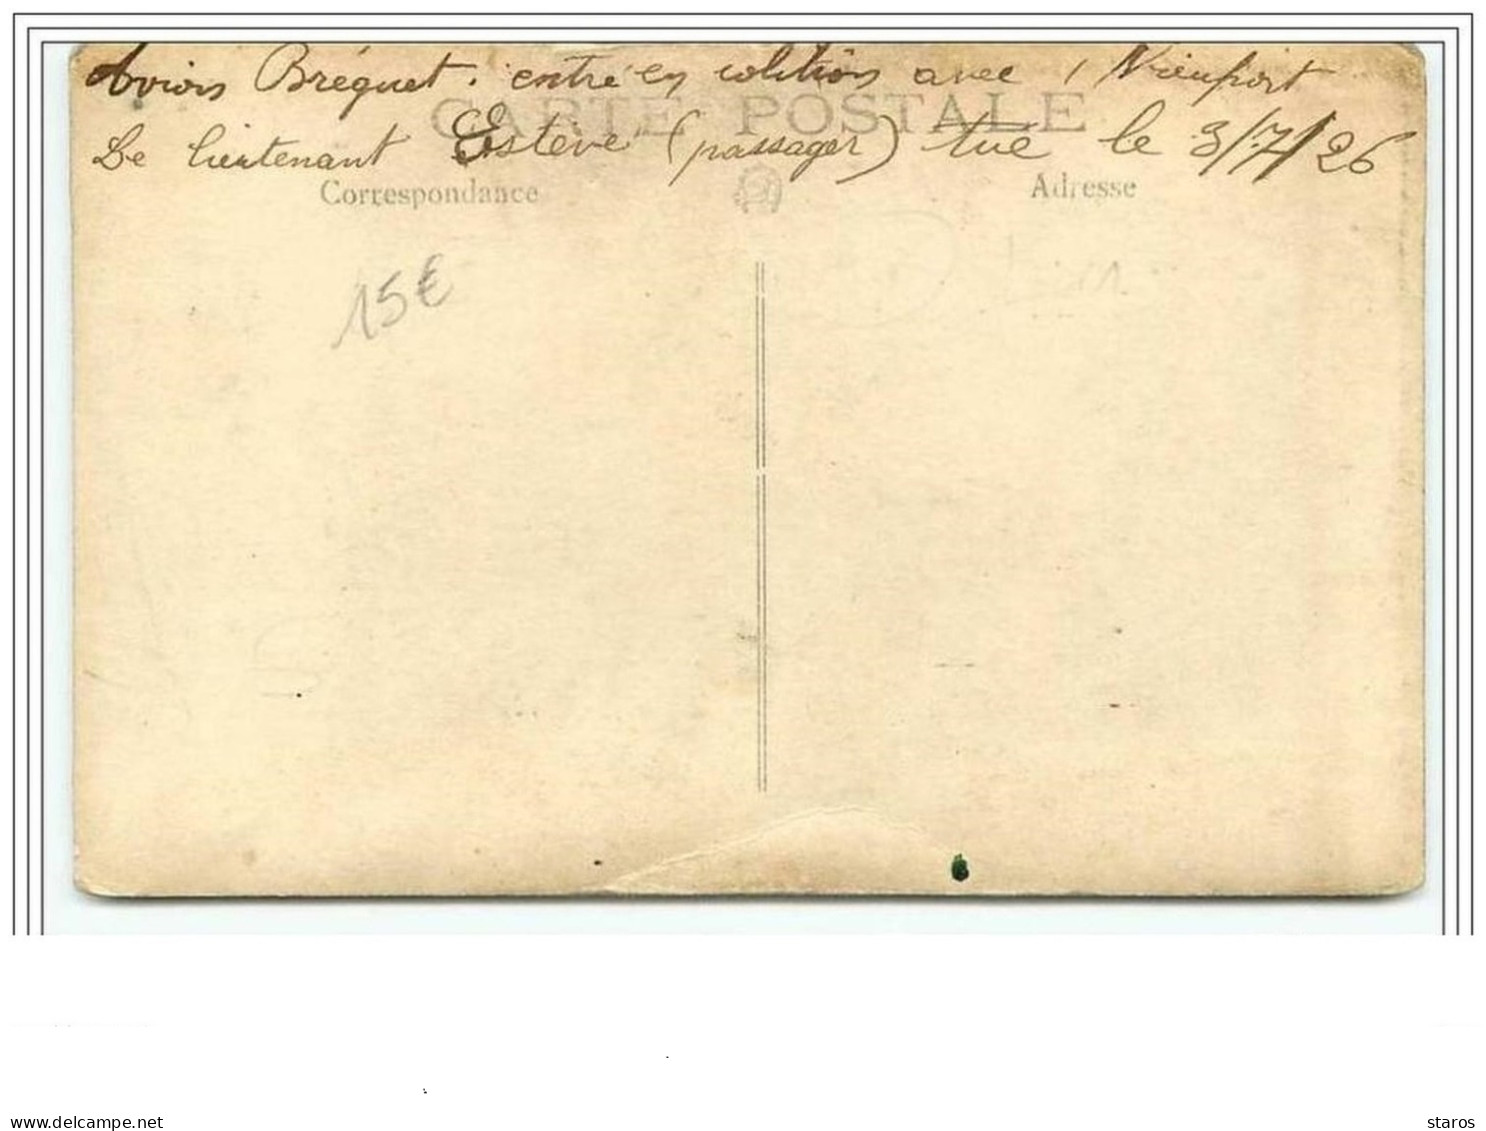 Avion Bréguet. entré en colition avec 1 Nieuport
CARTE POSTALE
Le lieutenant Estève (passager) tué le 3/7/26
Correspondance
Adresse
15€
www.delcampe.net
staros